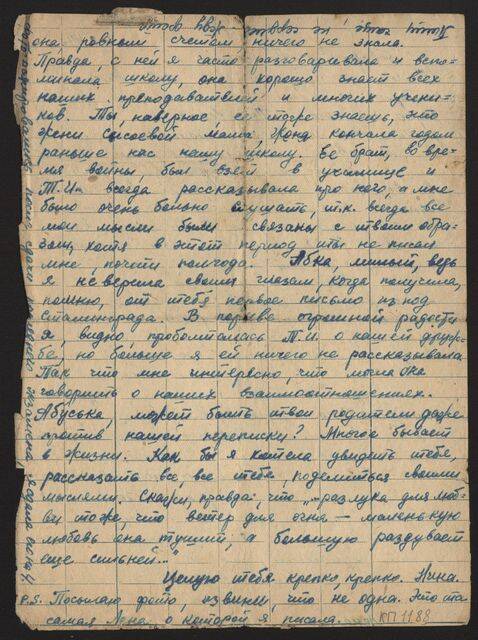 она ровным счетом ничего не знала.
Правда, с ней я часто разговаривала и вспо-
минала школу, она хорошо знает всех
наших преподавателей и многих учени-
ков. Ты, наверное, ее тоже знаешь, это
раньше нас нашу школу. Ее брат, во вре-
мя войны, был взят в училище и
Т.И. всегда рассказывала про него, а мне
было очень больно слушать, т.к. всегда все
мои мысли были связаны с твоим обра-
зом, хотя в этот период и ты не писал
мне, почти полгода. Абка, милый, ведь
я не верила своим глазам, когда получила,
помню, от тебя первое письмо из под
Сталинграда. В порыве огромной радости
я, видно, проболталась Т.И. о нашей друж-
бе, но больше я ей ничего не рассказывала
Так что мне интересно, что могла она
говорить о наших взаимоотношениях.
Абуська, может быть твои родители даже
против нашей переписки? Многое бывает
в жизни. Как бы я хотела увидить тебя,
рассказать все, все тебе, поделиться своими
мыслями. Скажи, правда, что „разлука для люб-
ви то же, что ветер для огня — маленькую
любовь она тушит, а большую раздувает
еще сильней..."
Целую тебя крепко, крепко. Нина.
P.S. Посылаю фото, извини, что не одна. Это та
самая Лена о которой я писала.
КП 1188